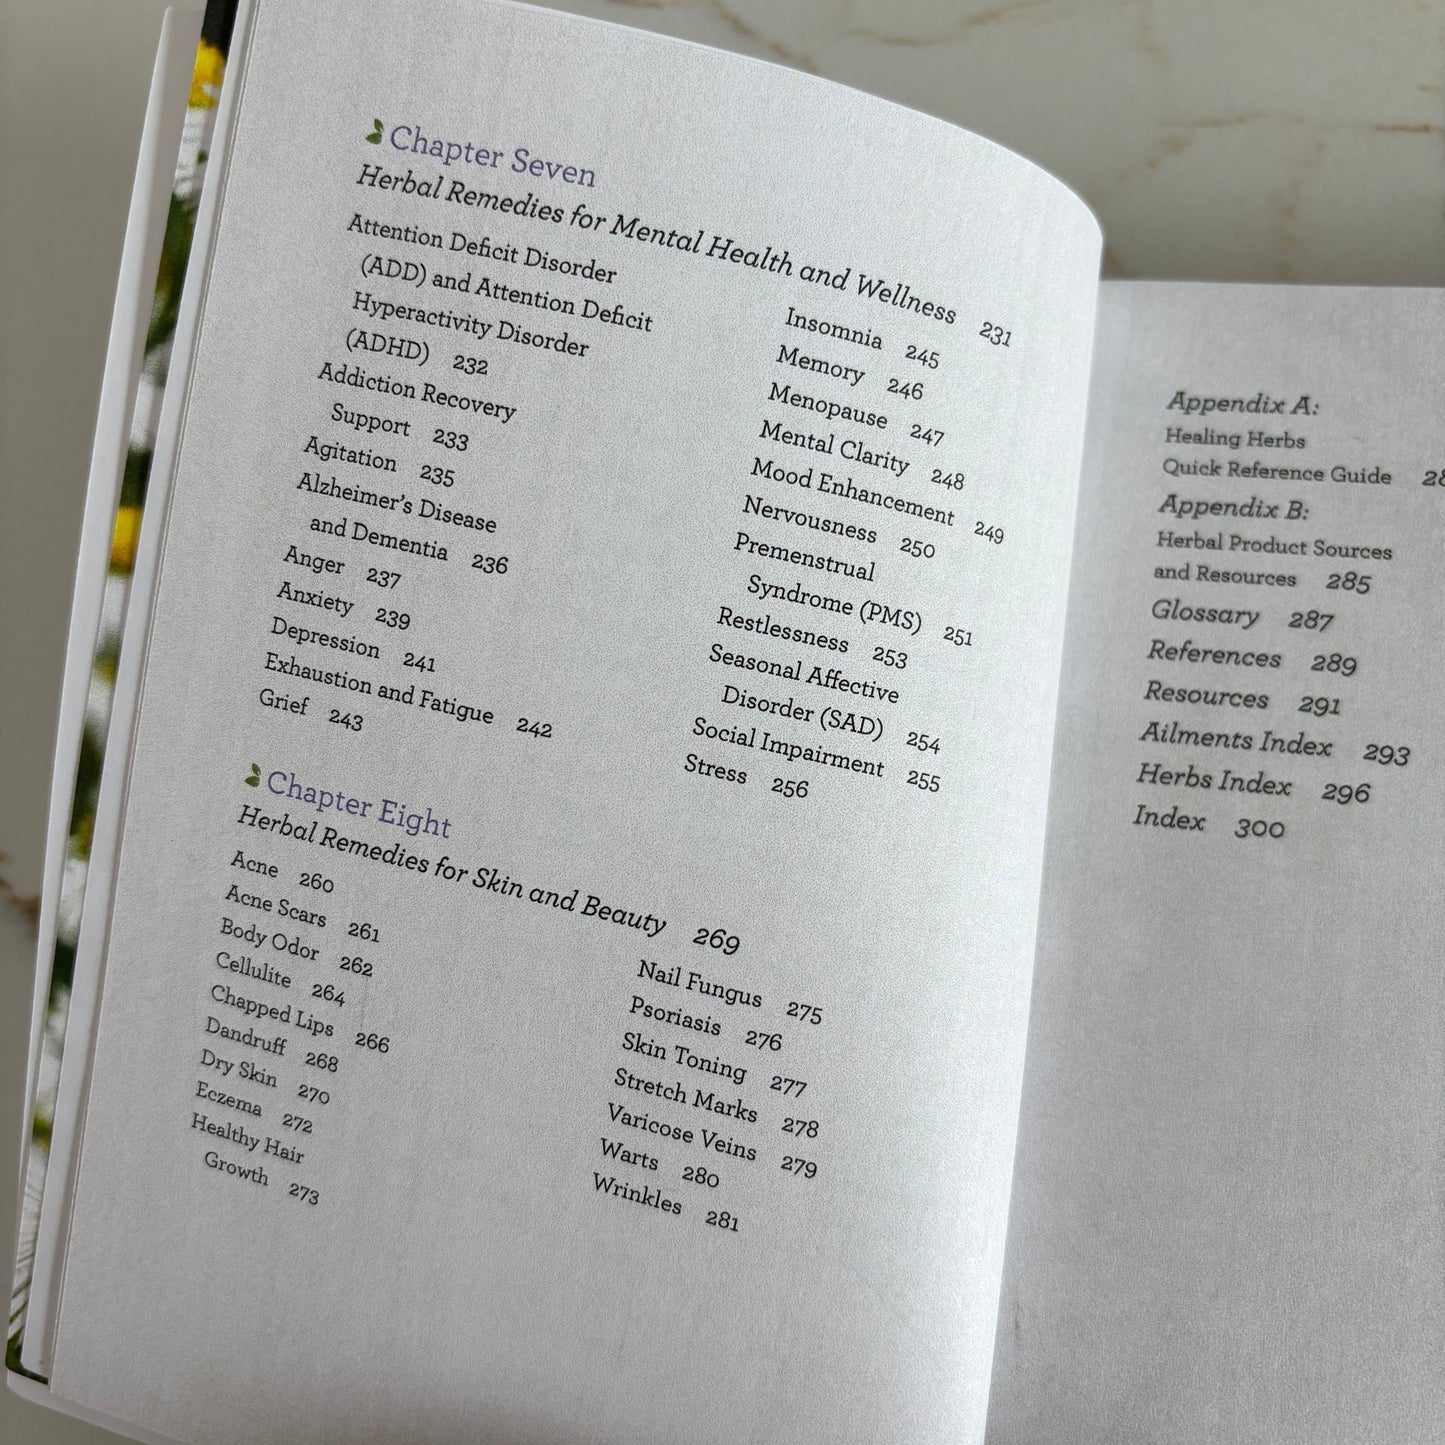 Chapter Seven
Herbal Remedies for Mental Health and Wellness 231
Attention Deficit Disorder
(ADD) and Attention Deficit
Hyperactivity Disorder
(ADHD) 232
Addiction Recovery
Support 233
Agitation 235
Alzheimer's Disease
and Dementia 236
Anger 237
Anxiety 239
Depression 241
Exhaustion and Fatigue 242
Grief 243
Insomnia 245
Memory 246
Menopause 247
Mental Clarity 248
Mood Enhancement 249
Nervousness 250
Premenstrual
Syndrome (PMS) 251
Restlessness 253
Seasonal Affective
Disorder (SAD) 254
Social Impairment 255
Stress 256
Chapter Eight
Herbal Remedies for Skin and Beauty 269
Acne 260
Acne Scars 261
Body Odor 262
Cellulite 264
Chapped Lips 266
Dandruff 268
Dry Skin 270
Eczema 272
Healthy Hair
Growth 273
Nail Fungus 275
Psoriasis 276
Skin Toning 277
Stretch Marks 278
Varicose Veins 279
Warts 280
Wrinkles 281
Appendix A:
Healing Herbs
Quick Reference Guide
Appendix B:
Herbal Product Sources
and Resources 285
Glossary 287
References 289
Resources 291
Ailments Index 293
Herbs Index 296
Index 300